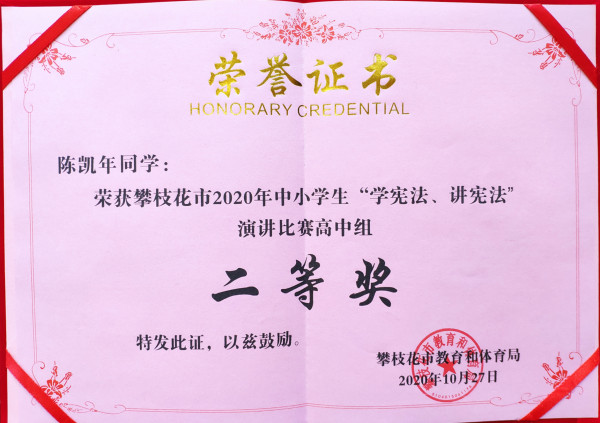 荣誉证书
HONORARY CREDENTIAL
陈凯年同学：
荣获攀枝花市2020年中小学生“学宪法、讲宪法”
演讲比赛高中组
二等奖
特发此证，以兹鼓励。
攀枝花市教育和体育局
2020年10月27日
攀枝花市教育和体育局